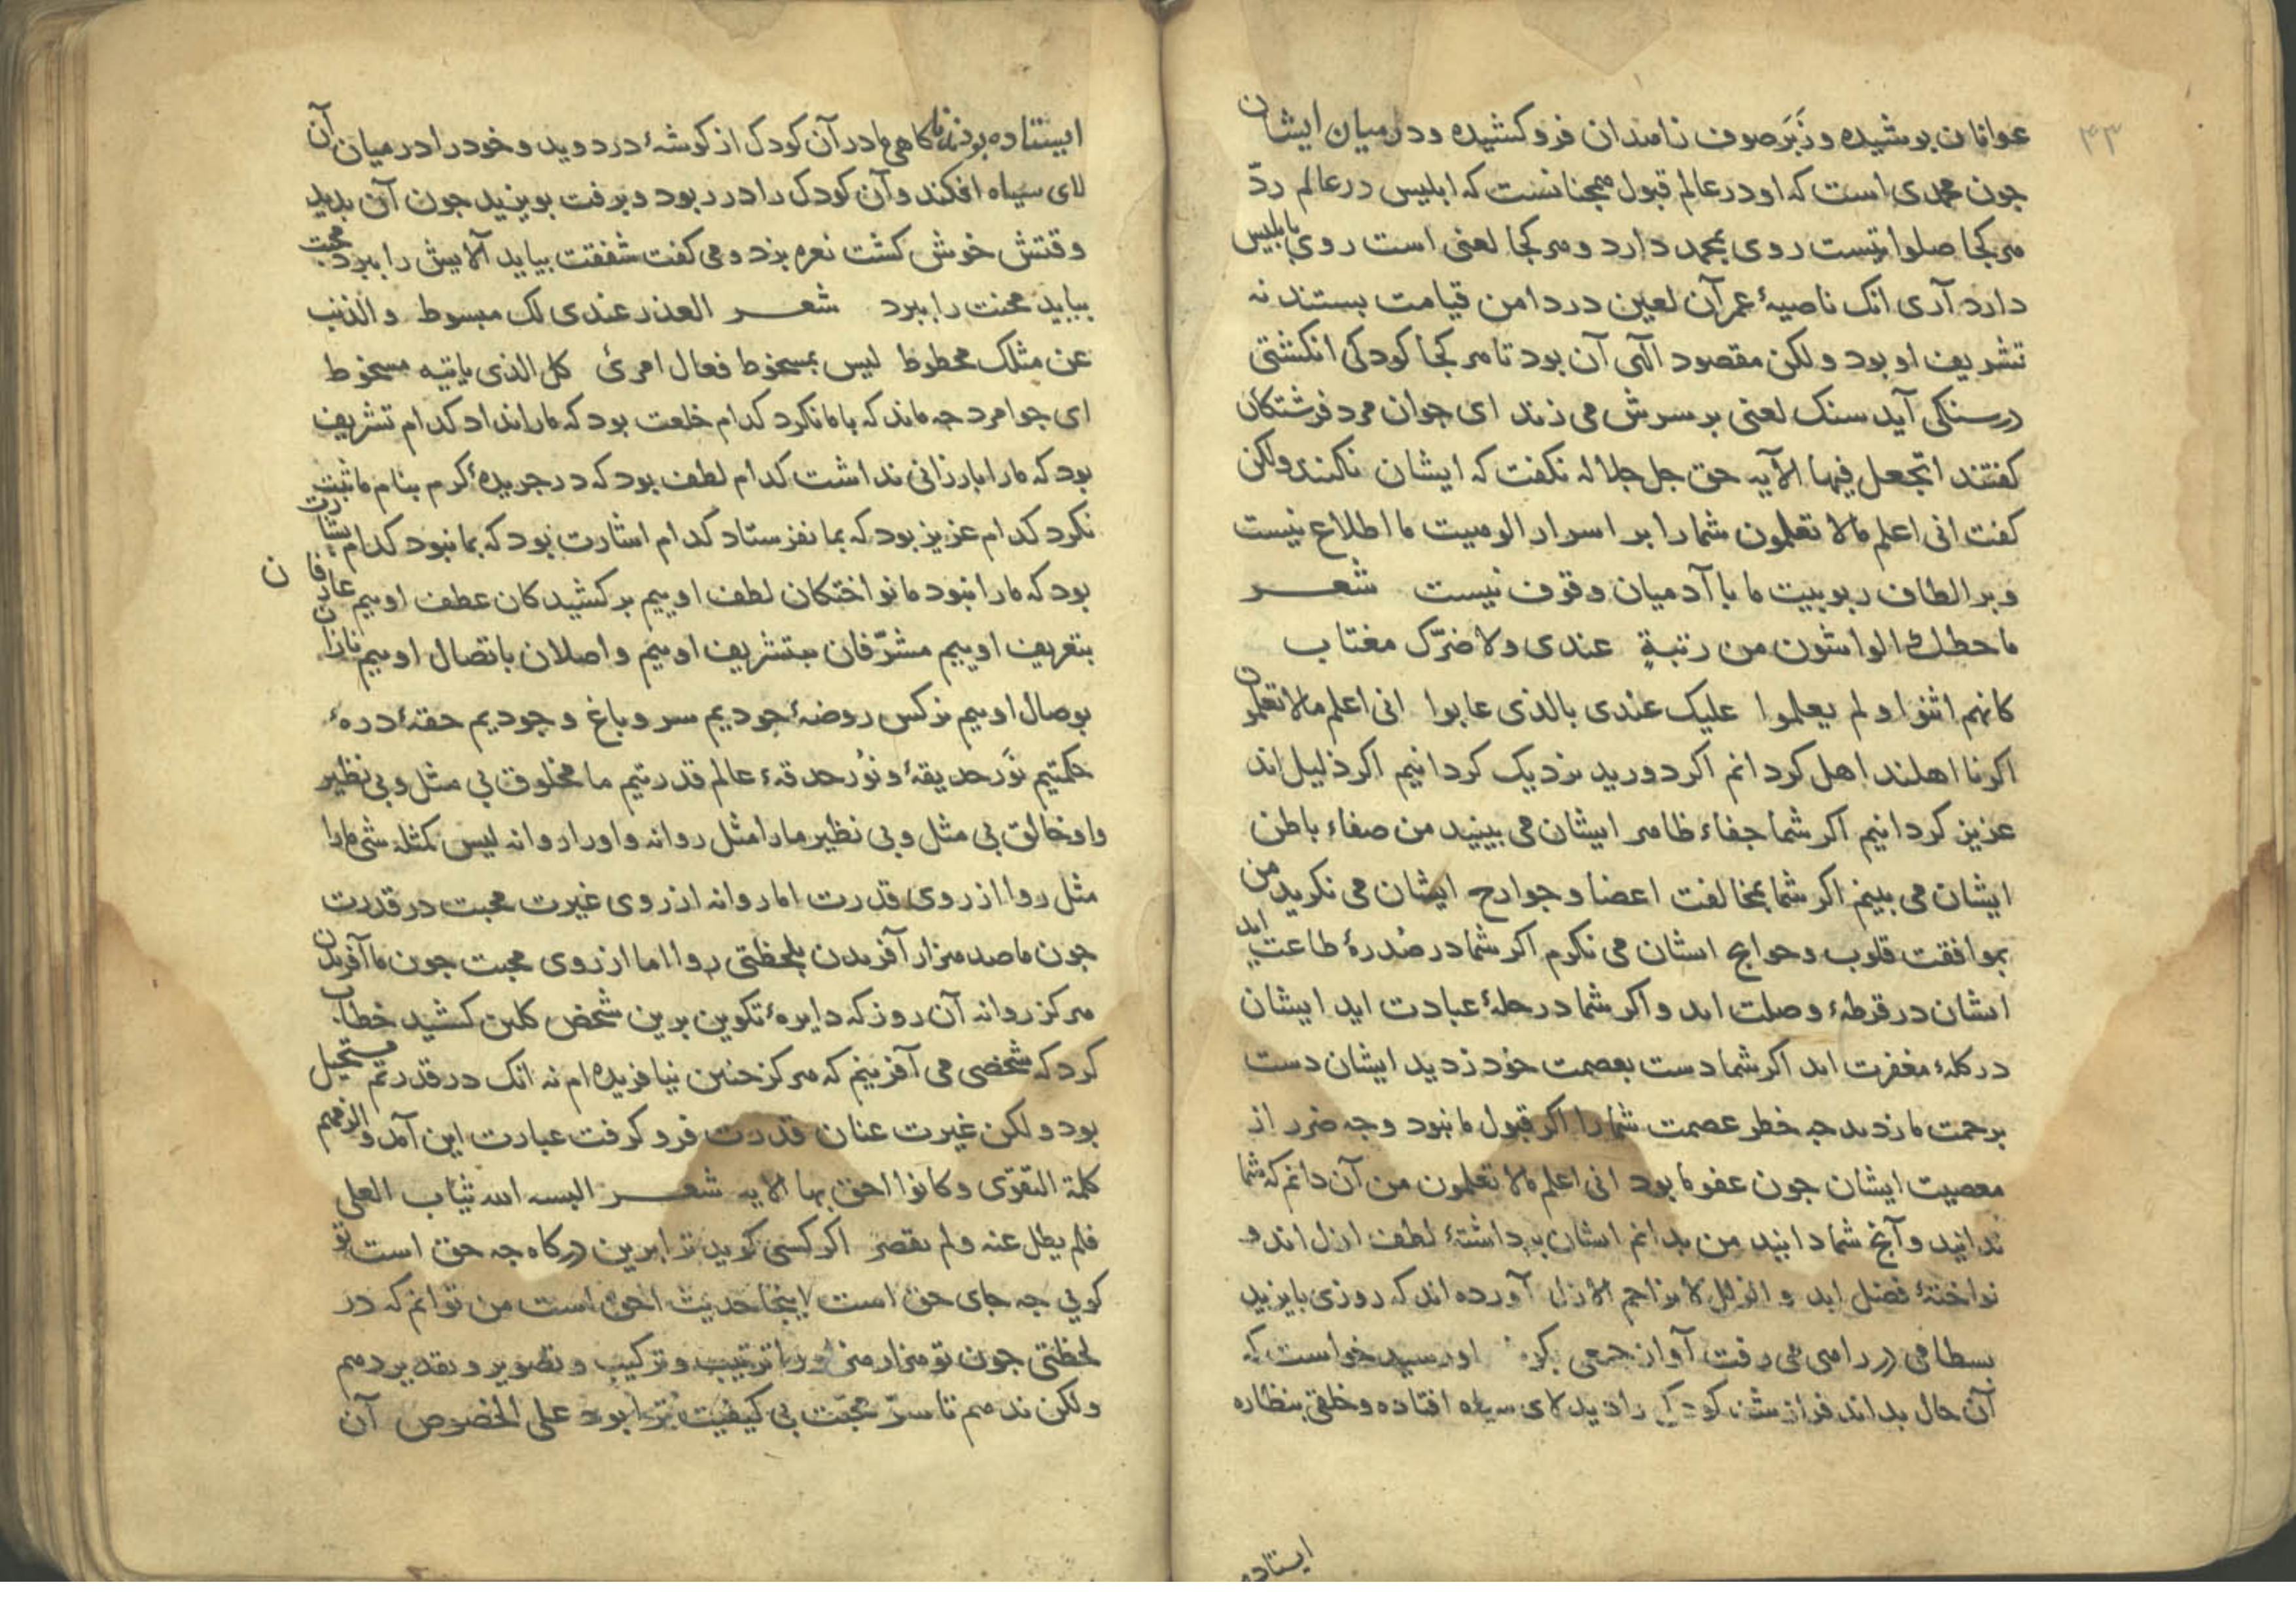 ۴۳
عوانان پوشیده و زَبَر صوف زاهدان فرو کشیده و در میان ایشان
جون محمدی است که او در عالم قبول همجنانست که ابلیس در عالم ردّ
هر کجا صلواتیست روی بمحمد دارد و هر کجا لعنی است روی بابلیس
دارد آری انک ناصیۀ عمر آن لعین در دامن قیامت بستند نه
تشریف او بود و لکن مقصود الٓهی آن بود تا هر کجا کودکی انکشتی
در سنکی آید سنک لعنی بر سرش می زند ای جوان مرد فرشتکان
کفتند اتجعل فیها الآیه حق جل جلاله نکفت که ایشان نکنند ولکن
کفت انی اعلم مالا تعلمون شما را بر اسرار الوهیت ما اطلاع نیست
و بر الطاف ربوبیت ما با آدمیان وقوف نیست شعر
ما حطك الواشون من رتبةٍ عندی ولا ضرّک مغتاب
کانهم اثنوا و لم یعلموا علیک عندی بالذی عابوا انی اعلم مالا تعلمون
اکر نا اهلند اهل کردانم اکر دورید نزدیک کردانیم اکر ذلیل اند
عزیز کردانیم اکر شما جفاء ظاهر ایشان می بینید من صفاء باطن
ایشان می بینم اکر شما بمخالفت اعضا و جوارح ایشان می نکرید من
بموافقت قلوب و حوایج اسشان می نکرم اکر شما در صُدرۀ طاعت اید
اىشان در قرطۀ وصلت اند و اکر شما در حلۀ عبادت اید ایشان
در کلۀ مغفرت اند اکر شما دست بعصمت خود زدید ایشان دست
برحمت ما زدند جه خطر عصمت شما را اکر قبول ما نبود و جه ضرر از
معصیت ایشان جون عفو ما بود انی اعلم مالا تعلمون من آن دانم که شما
ندانید و آنج شما دانید من بدانم اىشان برداشتۀ لطف ازل اند و
نواختۀ فضل ابد و الزلل لا یزاحم الازل آورده اند که روزی بایزید
بسطامی در راهی می رفت آواز جمعی بکوش او رسید خواست که
آن حال بداند فراز شد کودکی را دید لای سیاه افتاده و خلقی بنظاره
ایستاده
ایستاده بودند ناکاهی مادر آن کودک از کوشۀ در دوید و خود را در میان آن
لای سیاه افکند و آن کودک را در ربود و برفت بویزید جون آن بدید
وقتش خوش کشت نعره بزد و می کفت شفقت بیاید آلایش را ببرد محبت
بیاید محنت را ببرد شعر العذر عندی لک مبسوط والذنب
عن مثلک محطوط لیس بمسخوط فعال امرئ کل الذی یاتیه مسخوط
ای جوامرد جه ماند که با ما نکرد کدام خلعت بود که ما را نداد کدام تشریف
بود که ما را بارزانی نداشت کدام لطف بود که در جریدۀ کرم بنام ما ثبت
نکرد کدام عزیز بود که بما نفرستاد کدام اشارت بود که بما نبود کدام بشارت
بود که ما را نبود ما نواختکان لطف اوییم برکشیدکان عطف اوییم عارفان
بتعریف اوییم مشرّفان بتشریف اوییم واصلان باتصال اوییم نازان
بوصال اوییم نرکس روضۀ جودیم سرو باغ وجودیم حقۀ درۀ
حکمتیم نَور حدیقۀ و نُور حدقۀ عالم قدرتیم ما مخلوق بی مثل و بی نظیر
و او خالق بی مثل و بی نظیر ما را مثل روا نه و او را روا نه لیس کمثله شی ما را
مثل روا از روی قدرت اما روا نه از روی غیرت محبت در قدرت
جون ما صد هزار آفریدن بلحظتی روا اما از روی محبت جون ما آفریدن
هرکز روا نه آن روز که دایرۀ تکوین برین شخص کلین کشید خطاب
کرد که شخصی می آفرینم که هرکز جنین نیافریده ام نه انک در قدرتم مستحیل
بود و لکن غیرت عنان قدرت فرو کرفت عبارت این آمد و الزمهم
کلمة التقوٰی و کانوا احق بها الایه شعر البسه الله ثیاب العلی
فلم یطل عنه و لم یقصر اکر کسی کوید ترا برین درکاه جه حق است تو
کویی جه جای حق است اینجا حدیث احق است من توانم که در
لحظتی جون تو هزار هزار را ترتیب و ترکیب و تصویر و تقدیر دهم
و لکن ندهم تا سرّ محبّت بی کیفیت ترا بود علی الخصوص آن